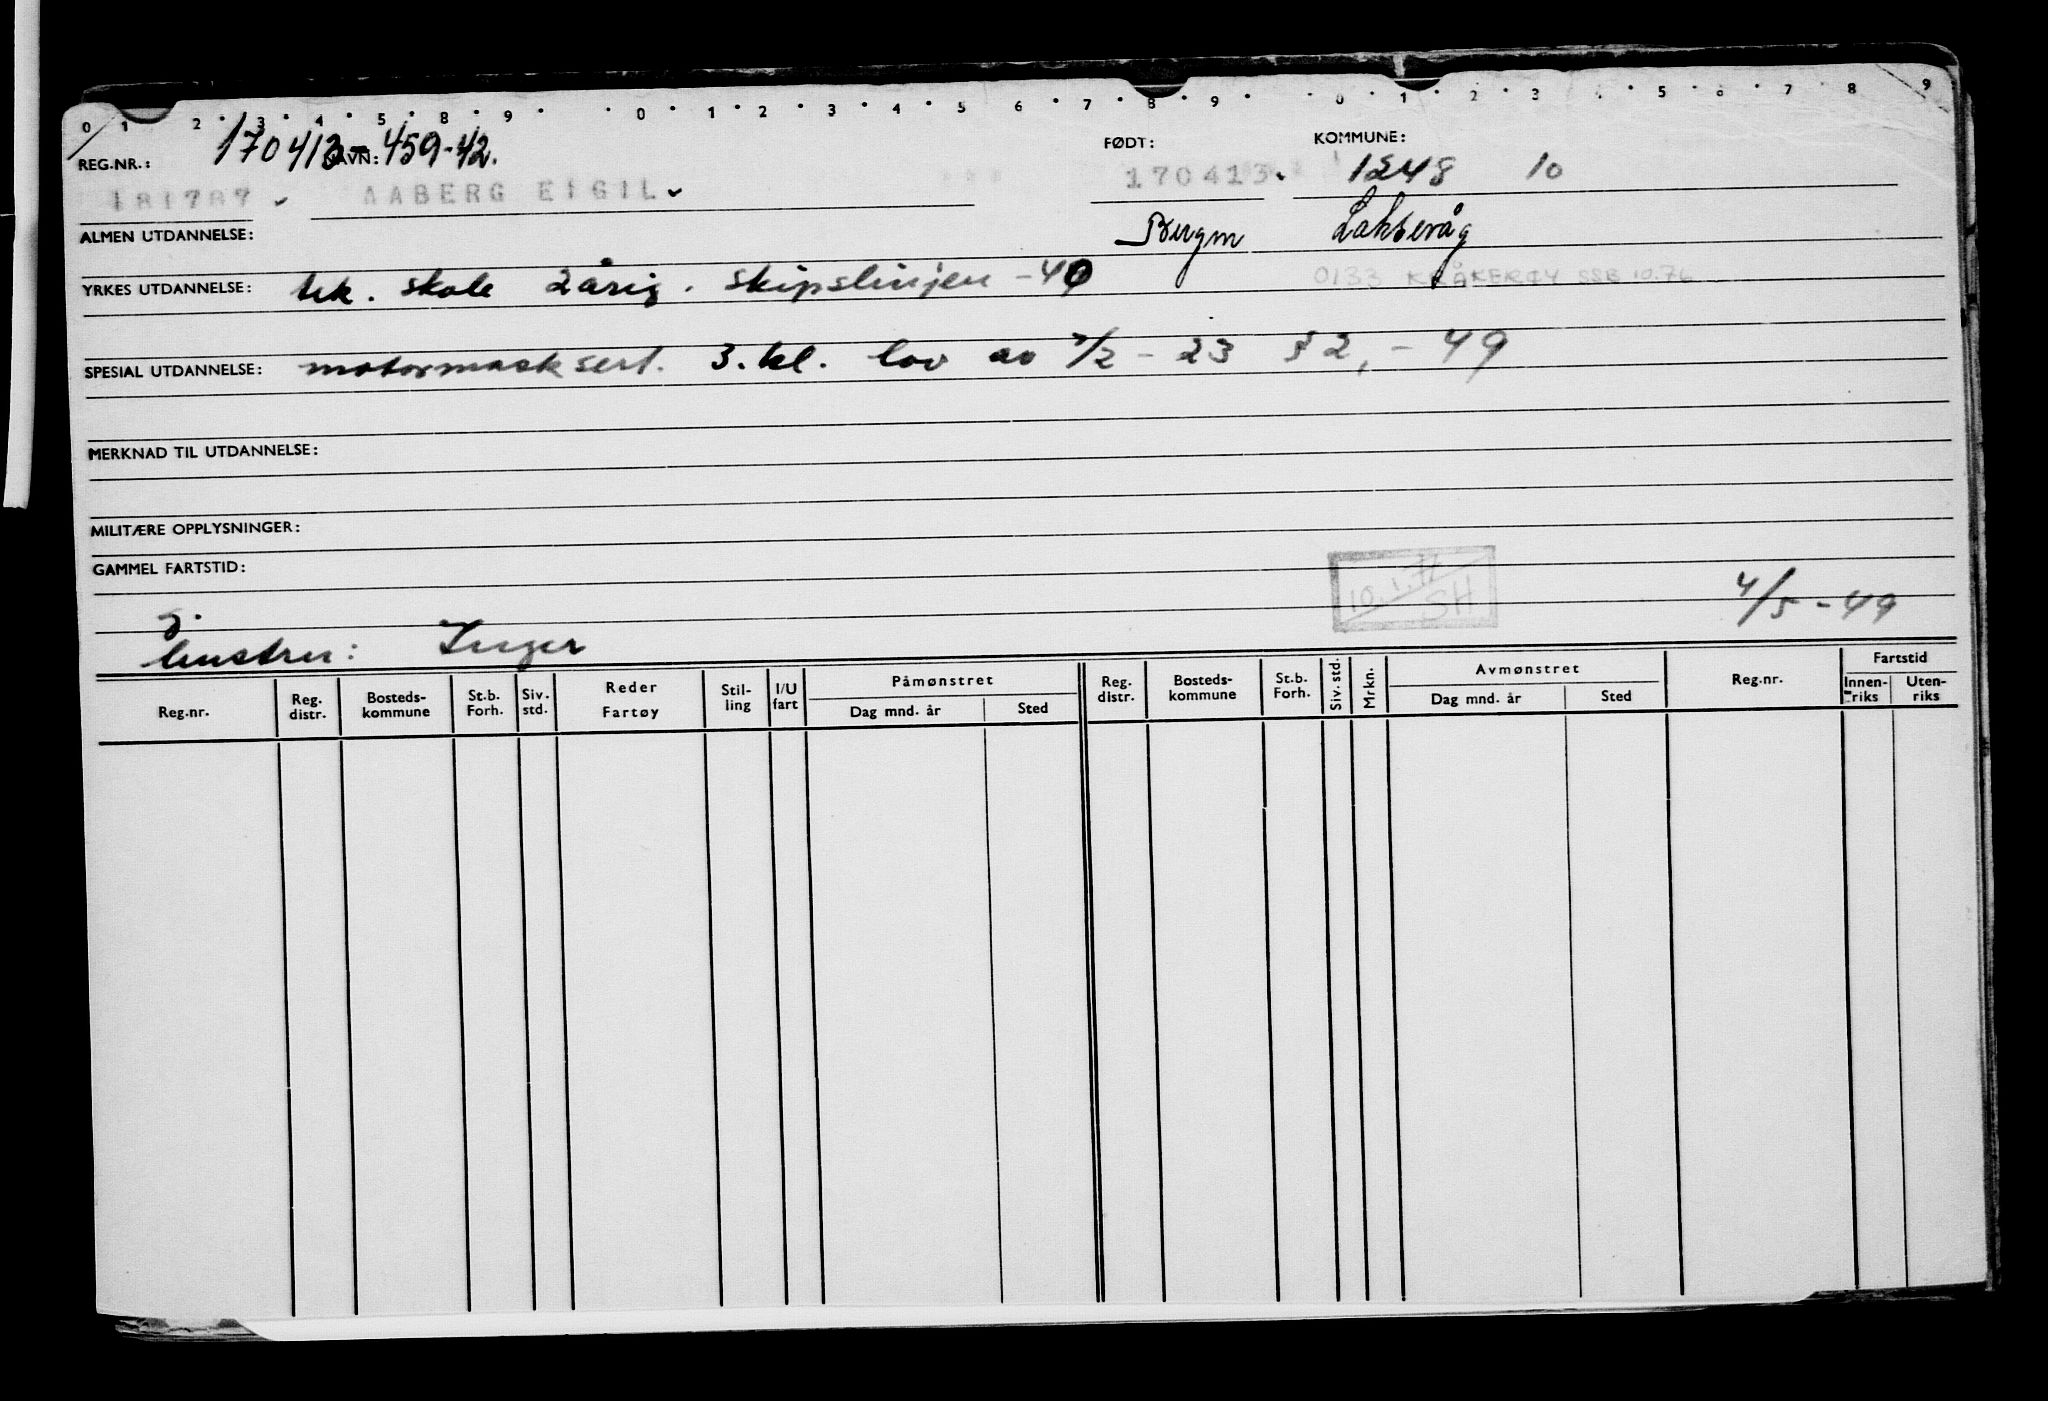 0 1 2 3 4 5 8 9 0 1 2 3 4 5 6 7 8 9 0 1 2 3 4 5 6 7 8 9
170413-459-42.
REG.NR.: NAVN: FØDT: KOMMUNE:
181787 AABERG EIGIL 170413. 1248 10
ALMEN UTDANNELSE: Bergen Laksevåg
YRKES UTDANNELSE: tek. skole 2 årig. skipslinjen -40 0133 KRÅKERØY SSB 10.76
SPESIAL UTDANNELSE: motormask sert. 3. kl. lov av 7/2 - 23 § 2, - 49
MERKNAD TIL UTDANNELSE:
MILITÆRE OPPLYSNINGER:
GAMMEL FARTSTID:
10.1.77 SH
4/5 - 49
g.
hustru: Inger
Reg.nr. Reg. distr. Bosteds-kommune St.b. Forh. Siv. std. Reder Fartøy Stil-ling I/U fart Påmønstret Dag mnd. år Sted Reg. distr. Bosteds-kommune St.b. Forh. Siv. std. Mrkn. Avmønstret Dag mnd. år Sted Reg.nr. Fartstid Innen-riks Uten-riks